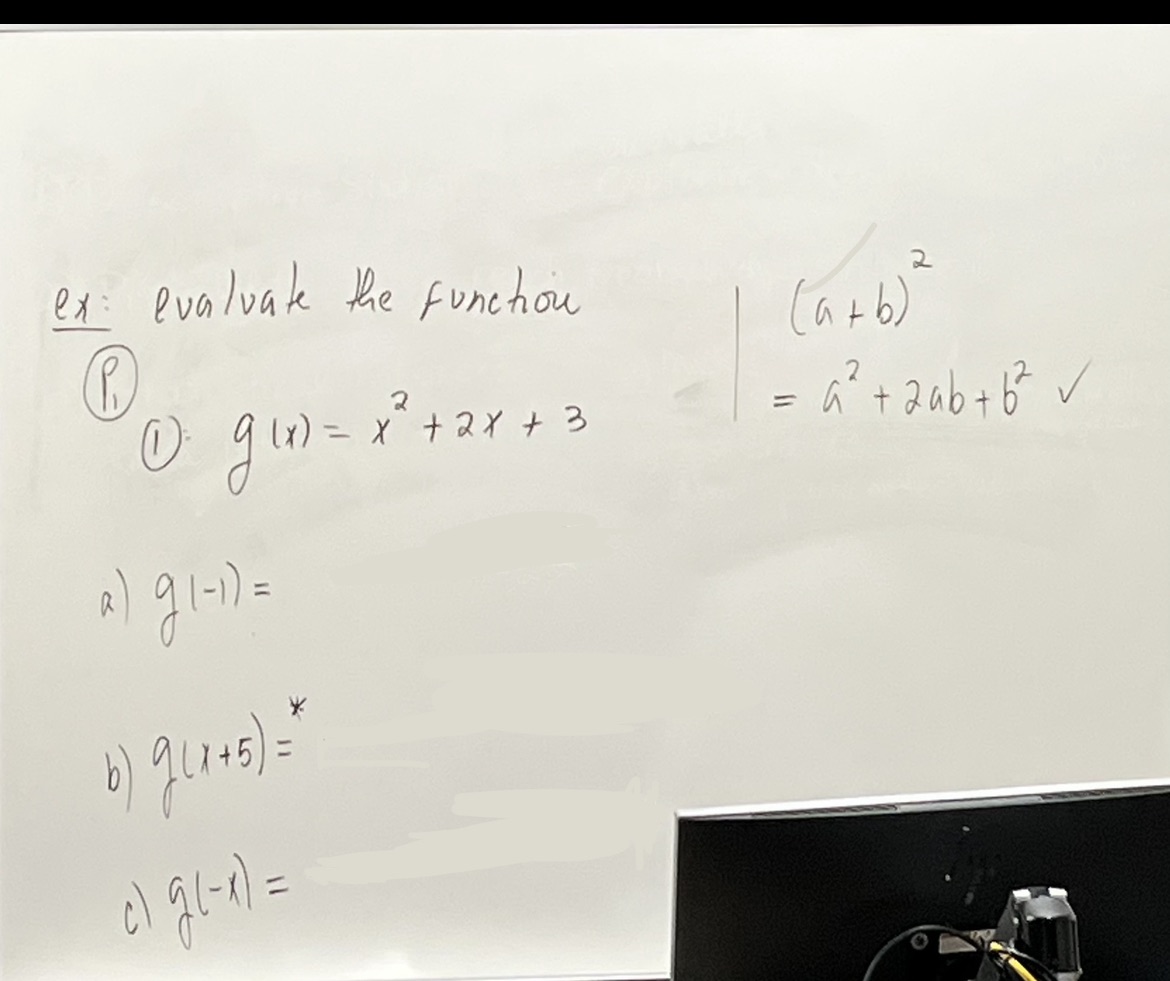 ex: evaluate the function
P₁
①: g(x) = x² + 2x + 3
(a + b)²
= a² + 2ab + b² ✓
a) g(-1) =
b) g(x+5) = *
c) g(-x) =